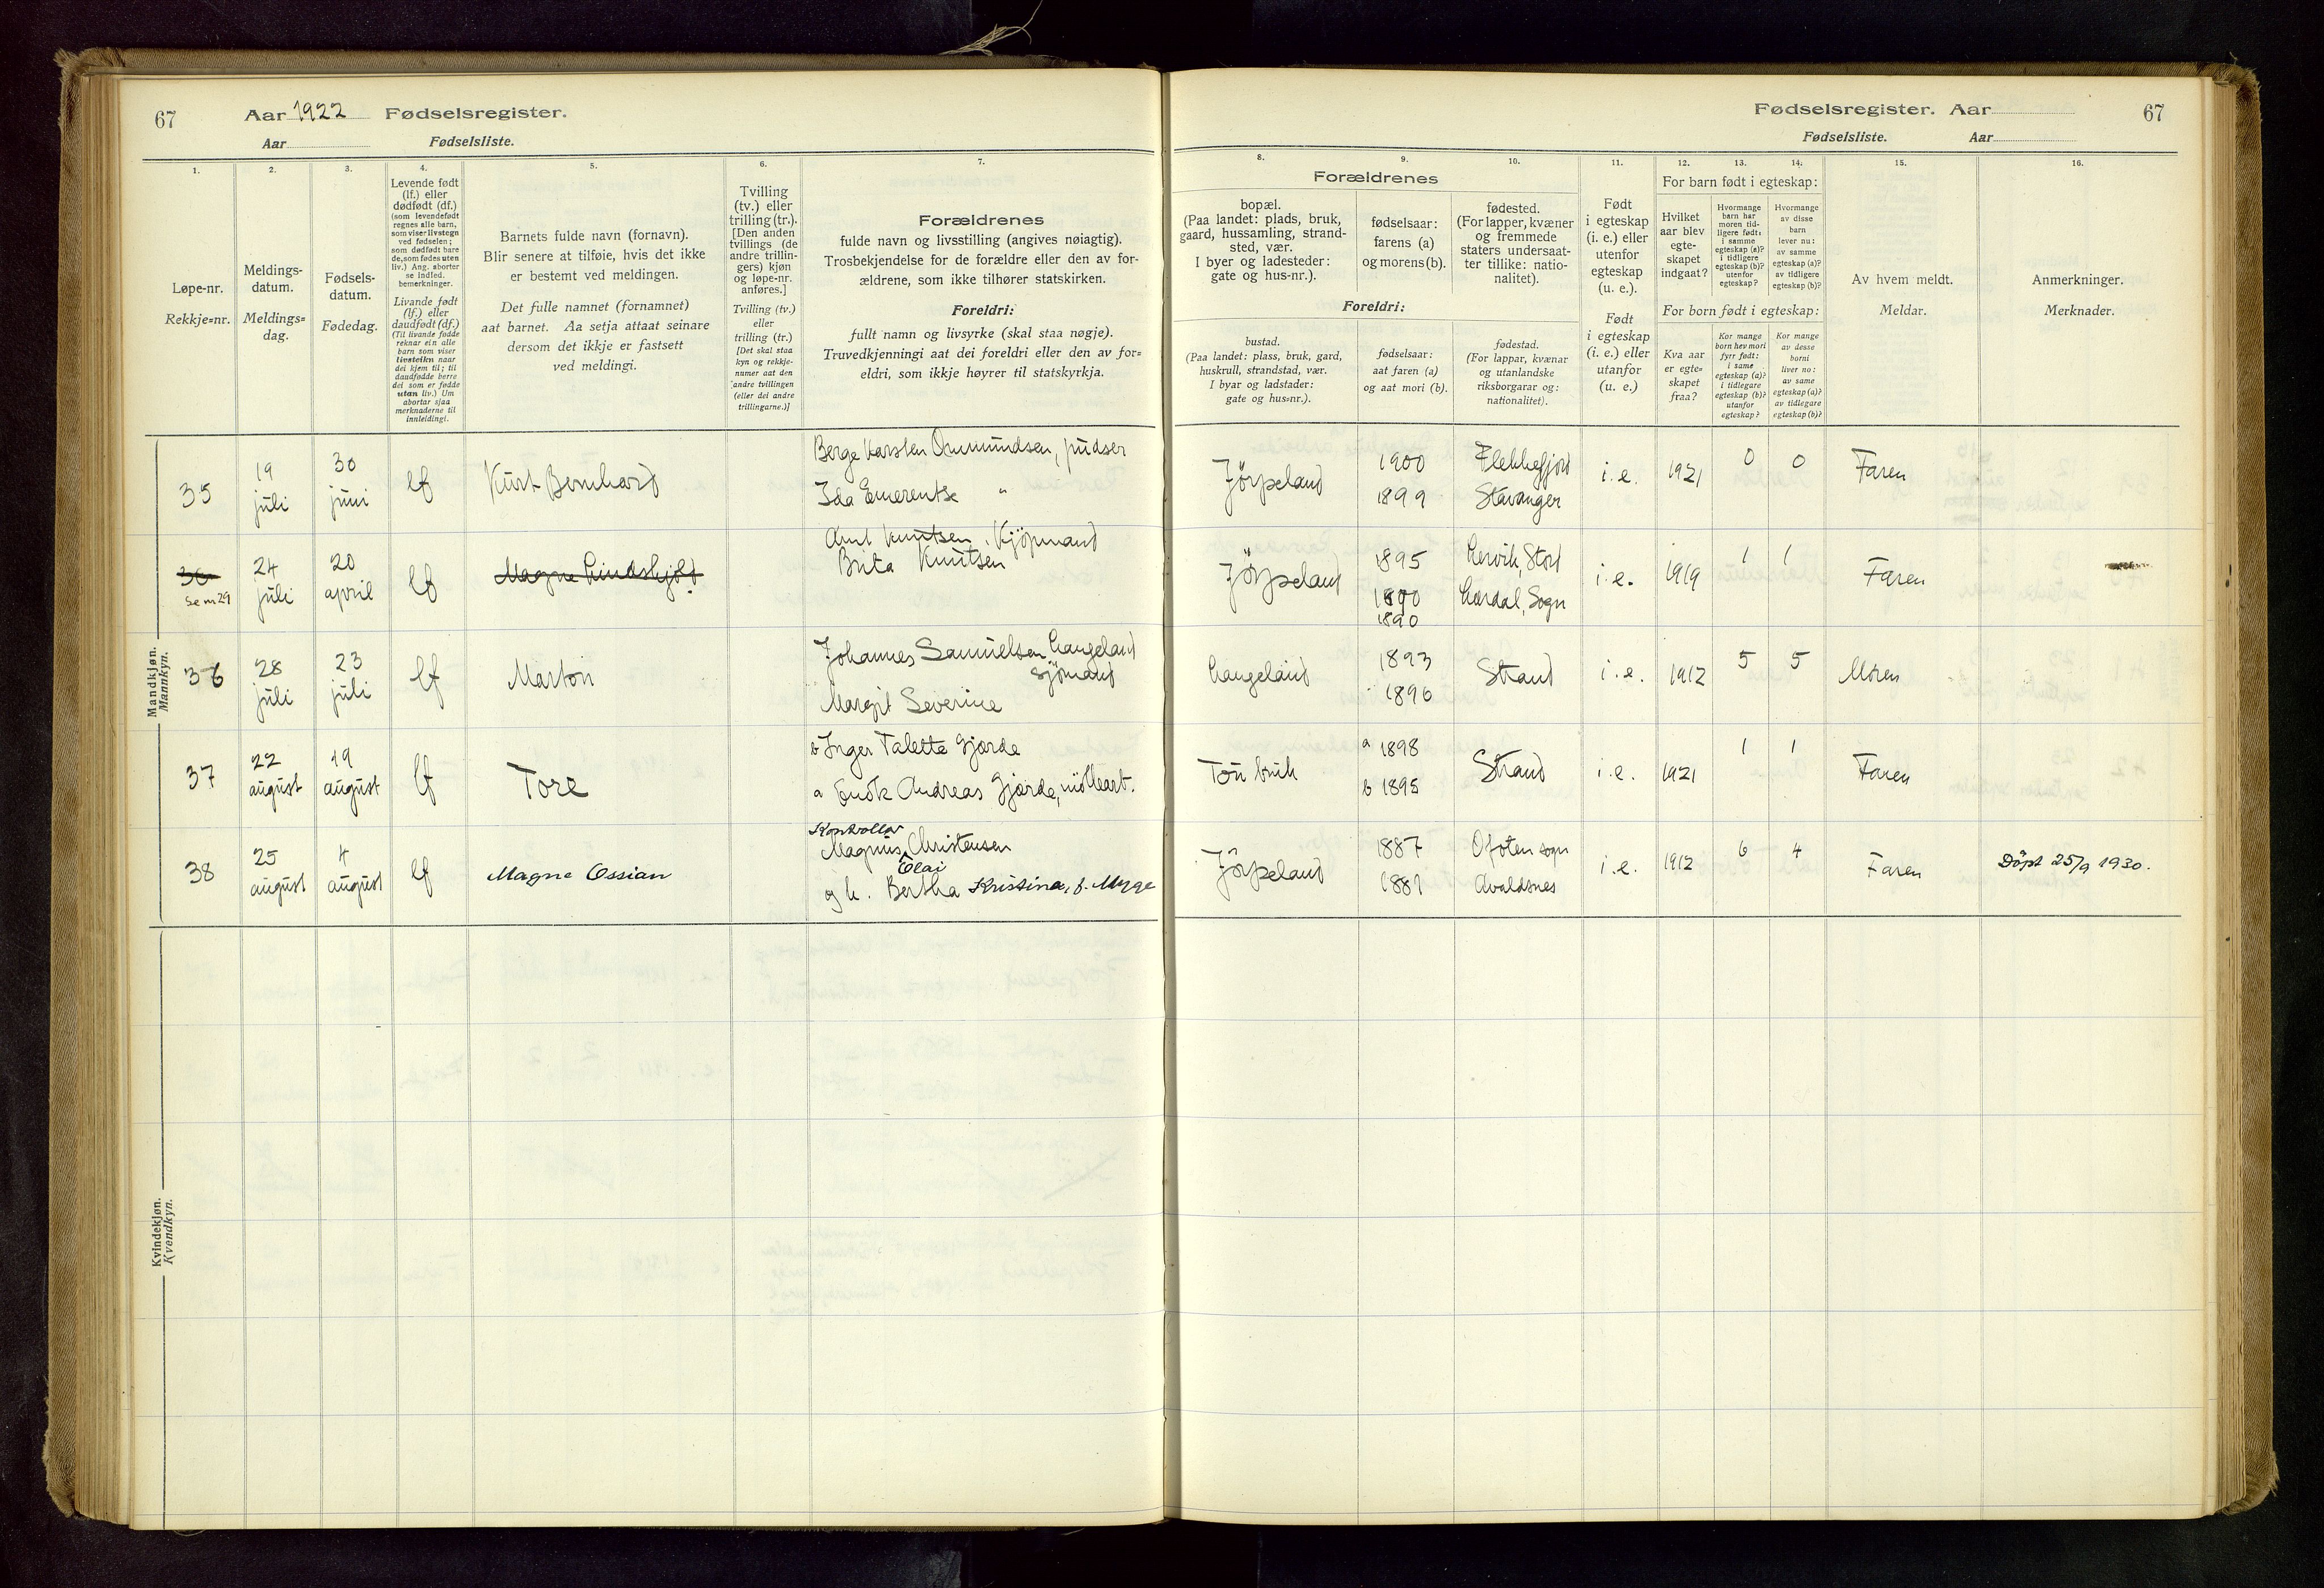 67 Aar 1922 Fødselsregister.
Aar Fødselsliste.
Fødselsregister. Aar 67
Fødselsliste. Aar
1. 2. 3. 4. 5. 6. 7.
8. 9. 10. 11. 12. 13. 14. 15. 16.
Løpe-nr.
Rekkje=nr.
Meldings-
datum.
Meldings=
dag.
Fødsels-
datum.
Fødedag.
Levende født
(lf.) eller
dødfødt (df.)
(som levendefødt
regnes alle barn,
som viser livstegn
ved fødselen;
som dødfødt bare
de, som fødes uten
liv.) Ang. aborter
se indled.
bemerkninger.
Livande født
(lf.) eller
daudfødt (df.)
(Til livande fødde
reknar ein alle
barn som viser
livsteikn naar
dei kjem til; til
daudfødde berre
dei som er fødde
utan liv.) Um
abortar sjaa
merknaderne til
innleidingi.
Barnets fulde navn (fornavn).
Blir senere at tilføie, hvis det ikke
er bestemt ved meldingen.
Det fulle namnet (fornamnet)
aat barnet. Aa setja attaat seinare
dersom det ikkje er fastsett
ved meldingi.
Tvilling
(tv.) eller
trilling (tr.).
[Den anden
tvillings (de
andre trillin-
gers) kjøn
og løpe-nr.
anføres.]
Tvilling (tv.)
eller
trilling (tr.)
[Det skal staa
kyn og rekkje-
numer aat den
andre tvillingen
(eller dei andre
trillingarne.)]
Forældrenes
fulde navn og livsstilling (angives nøiagtig).
Trosbekjendelse for de forældre eller den av for-
ældrene, som ikke tilhører statskirken.
Foreldri:
fullt namn og livsyrke (skal staa nøgje).
Truvedkjenningi aat dei foreldri eller den av for=
eldri, som ikkje høyrer til statskyrkja.
Forældrenes
bopæl.
(Paa landet: plads, bruk,
gaard, hussamling, strand-
sted, vær.
I byer og ladesteder:
gate og hus-nr.).
fødselsaar:
farens (a)
og morens (b).
fødested.
(For lapper, kvæner
og fremmede
staters undersaat-
ter tillike: natio-
nalitet).
Foreldri:
bustad.
(Paa landet: plass, bruk, gard,
huskrull, strandstad, vær.
I byar og ladstader:
gate og hus=nr.).
fødselsaar:
aat faren (a)
og aat mori (b).
fødestad.
(For lappar, kvænar
og utanlandske
riksborgarar og:
nationalitet).
Født
i egteskap
(i. e.) eller
utenfor
egteskap
(u. e.).
Født
i egteskap
(i. e.) eller
utanfor
(u. e.)
For barn født i egteskap:
Hvilket
aar blev
egte-
skapet
indgaat?
Hvormange
barn har
moren tid-
ligere født:
i samme
egteskap (a)?
i tidligere
egteskap (b)?
utenfor
egteskap?
Hvormange
av disse
barn
lever nu:
av samme
egteskap (a)?
av tidligere
egteskap (b)?
For born født i egteskap:
Kva aar
er egte=
skapet
fraa?
Kor mange
born hev mori
fyrr født:
i same
egteskap (a)?
i tidlegare
egteskap (b)?
utanfor
egteskap?
Kor mange
av desse
borni
liver no:
av same
egteskap (a)?
av tidlegare
egteskap (b)?
Av hvem meldt.
Meldar.
Anmerkninger.
Merknader.
Mandkjøn.
Mannkyn.
35 19 juli 30 juni lf Kurt Bernhard
Berge Karsten Ommundsen, pudser
Ida Emerentse "
Jörpeland 1900 Flekkefjord i.e. 1921 0 0 Faren
1899 Stavanger
36 Se nr 29 24 juli 20 april lf Magne Lindskjold
Arnt Knutsen, Kjöpmand
Brita Knutsen
Jörpeland 1895 Lervik, Stord i.e. 1919 1 1 Faren
1890 Lærdal, Sogn
1890
36 28 juli 23 juli lf Marton
Johannes Samuelsen Langeland
Sjömand
Margit Severine
Langeland 1893 Strand i.e. 1912 5 5 Moren
1896
37 22 august 19 august lf Tore
b Inger Talette Gjerde
a Endre Andreas Gjerde,
Tou bruk a 1898 Strand i.e. 1921 1 1 Faren
b 1895
38 25 august 4 august lf Magne Ossian
Kontrollör
Magnus Christensen
Olai
og h. Bertha Kristina, f. Mygge
Jörpeland 1887 Ofoten sogn i.e. 1912 6 4 Faren Döpt 25/9 1930.
1881 Avaldsnes
Kvindekjøn.
Kvendkyn.